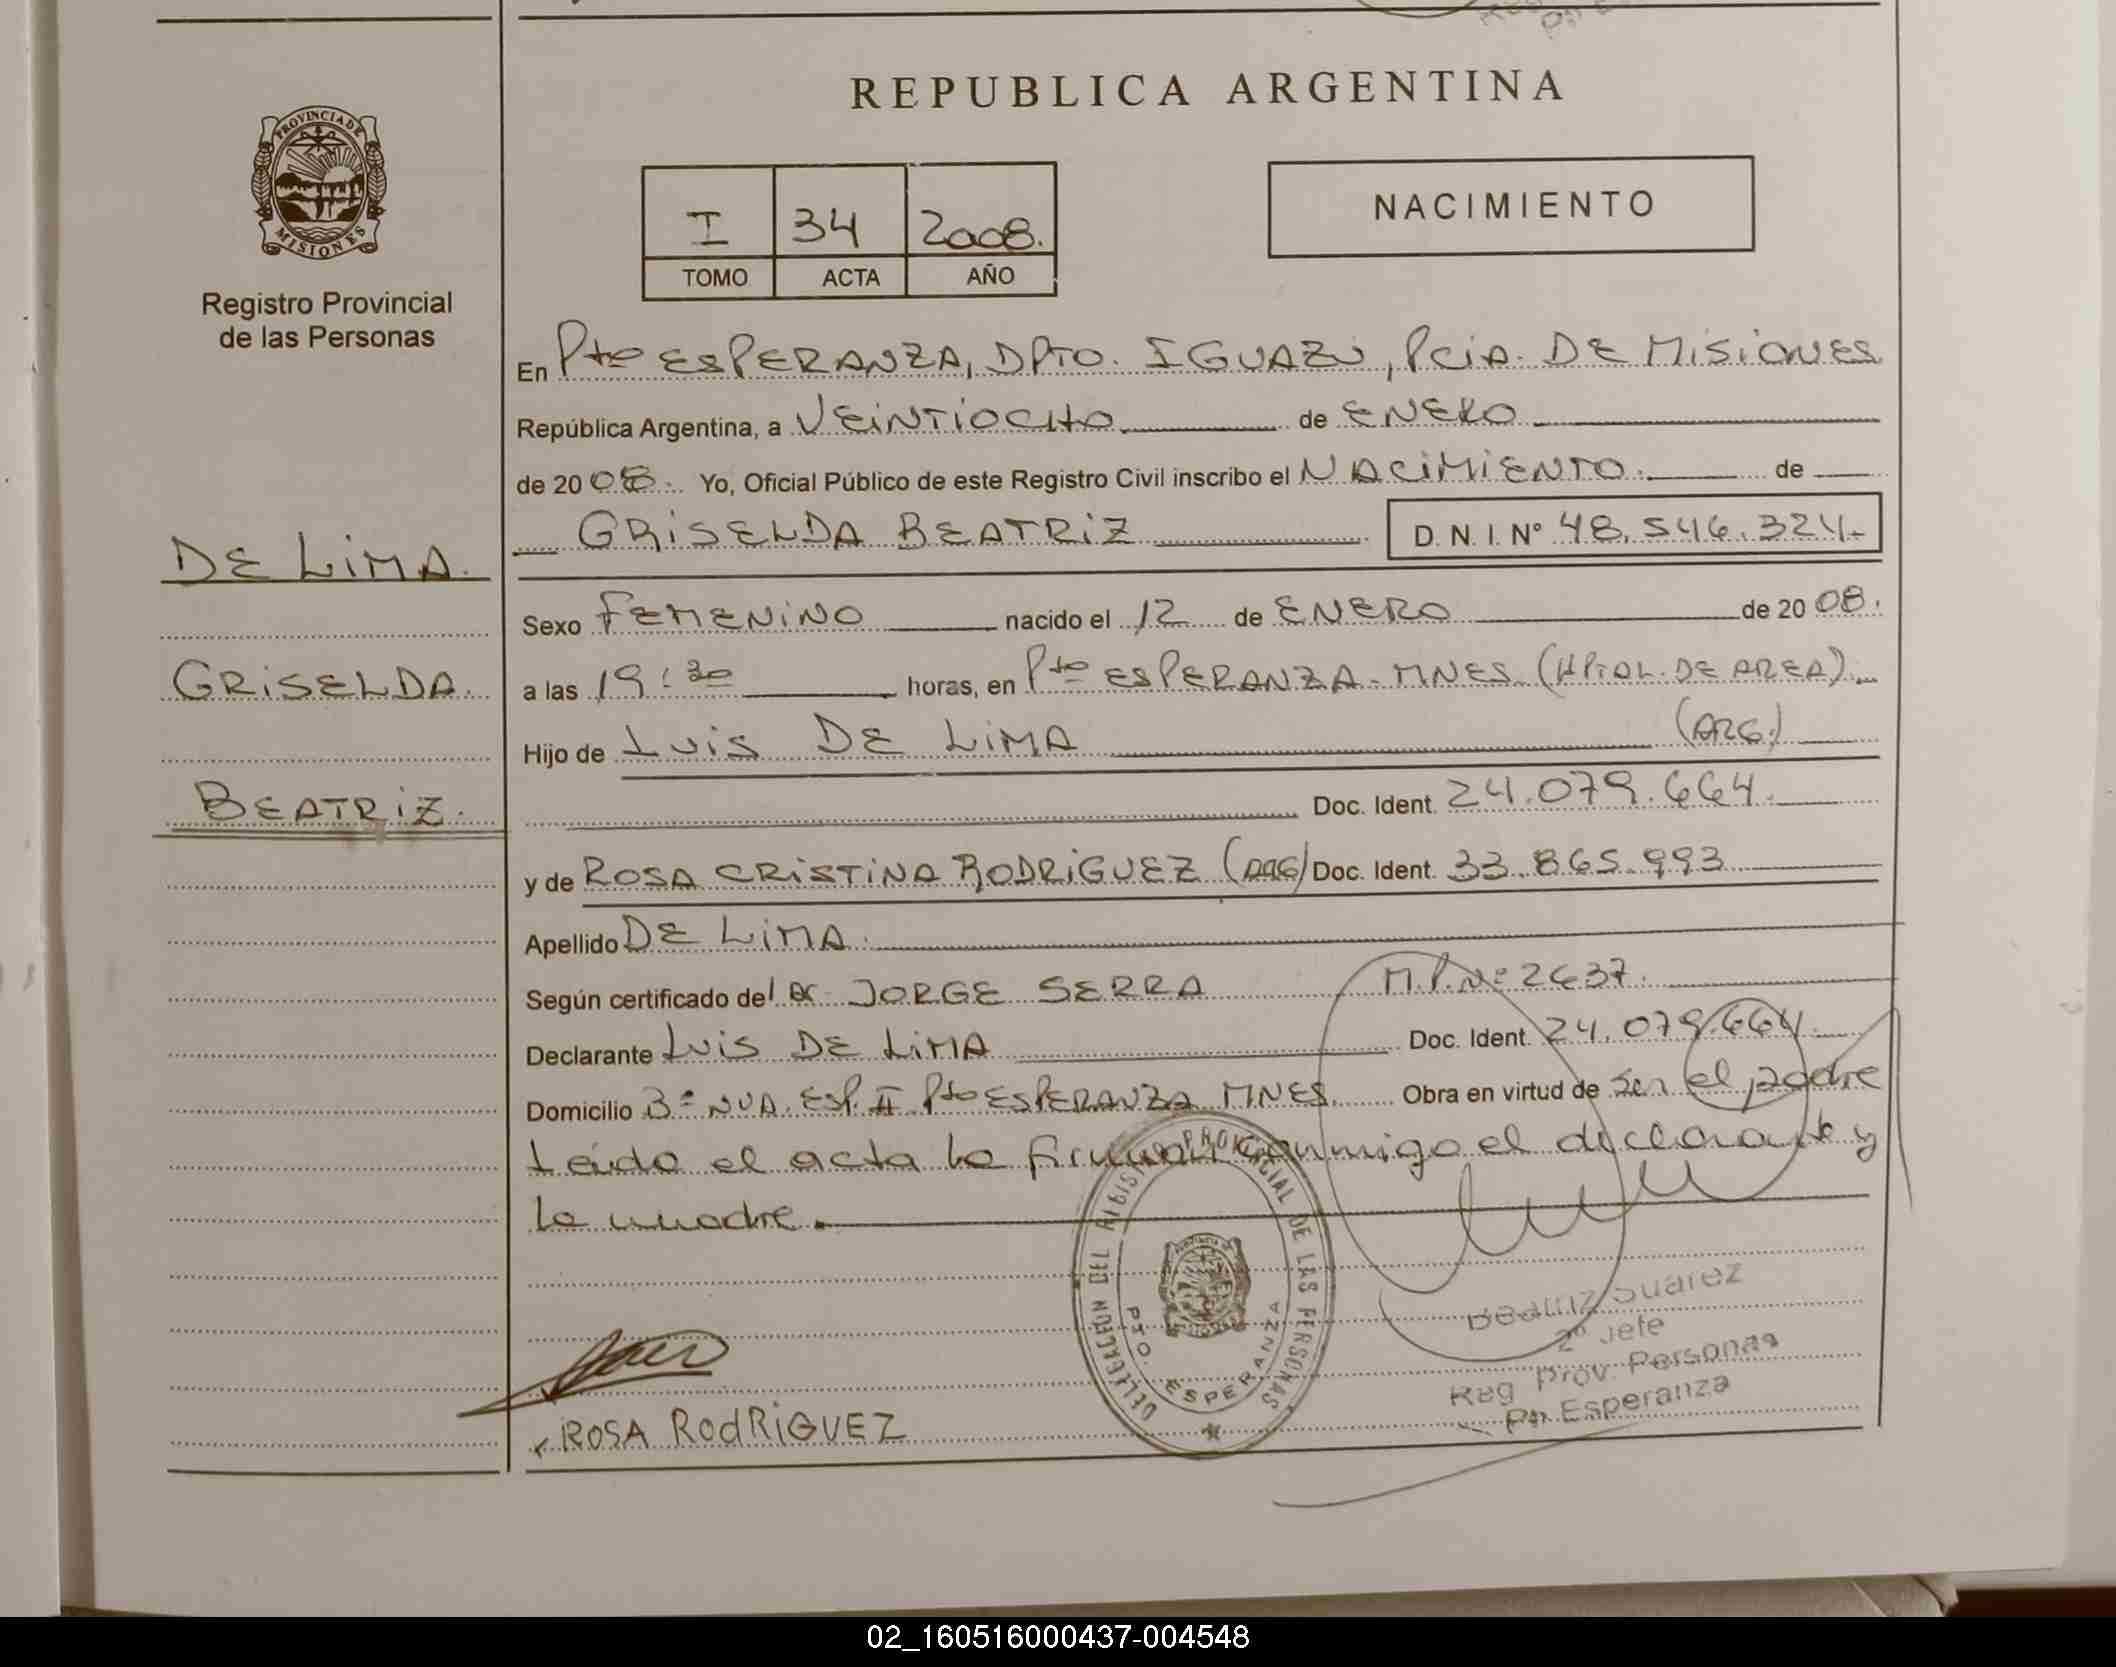 REPUBLICA ARGENTINA
PROVINCIA DE
MISIONES
Registro Provincial
de las Personas
I 34 2008.
TOMO ACTA AÑO
NACIMIENTO
En Pto ESPERANZA, DPTO. IGUAZÚ, PCIA. DE MISIONES
República Argentina, a VEINTIOCHO de ENERO
de 2008. Yo, Oficial Público de este Registro Civil inscribo el NACIMIENTO. de
GRISELDA BEATRIZ D.N.I. Nº 48.546.324.-
DE LIMA.
GRISELDA.
BEATRIZ.
Sexo FEMENINO nacido el 12 de ENERO de 2008.
a las 19:30 horas, en Pto ESPERANZA-MNES (HPIAL. DE AREA).
Hijo de LUIS DE LIMA (ARG.)
Doc. Ident. 24.079.664.
y de ROSA CRISTINA RODRIGUEZ (ARG) Doc. Ident. 33.865.993
Apellido DE LIMA.
Según certificado del Dr. JORGE SERRA M.P.Nº 2637.
Declarante LUIS DE LIMA Doc. Ident. 24.079.664.
Domicilio 3º NVA. ESP. II Pto ESPERANZA MNES. Obra en virtud de ser el padre
Leída el acta la firman conmigo el declarante y
la madre.
DELEGACION DEL REGISTRO PROVINCIAL DE LAS PERSONAS
PTO. ESPERANZA
Beatriz Suarez
2º Jefe
Reg Prov. Personas
Pto. Esperanza
ROSA RodRiGUEZ
02_160516000437-004548